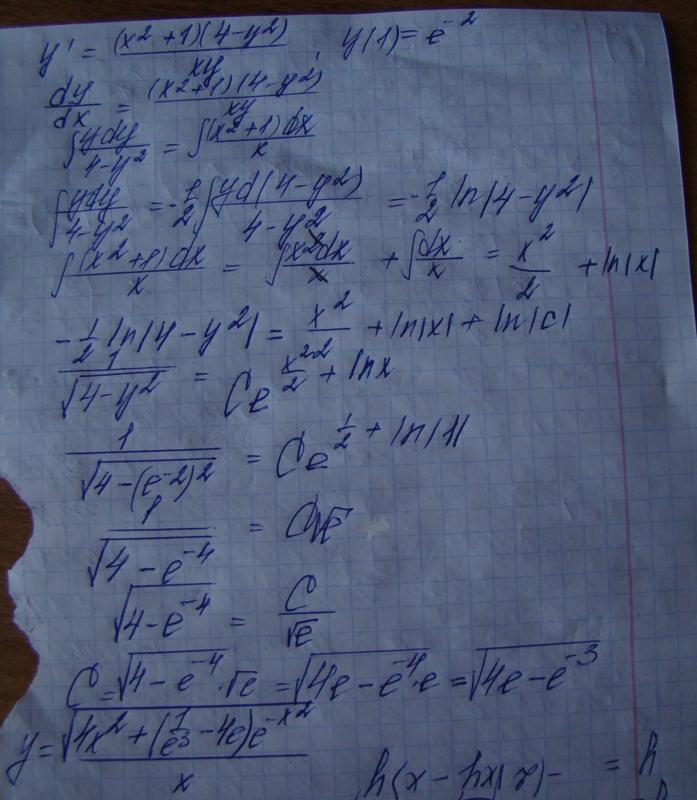 y' = (x² + 1)(4 - y²) / xy, y(1) = e⁻²
dy/dx = (x² + 1)(4 - y²) / xy
∫ ydy / (4 - y²) = ∫ (x² + 1)dx / x
∫ ydy / (4 - y²) = -1/2 ∫ yd(4 - y²) / (4 - y²) = -1/2 ln|4 - y²|
∫ (x² + 1)dx / x = ∫ x²dx / x + ∫ dx / x = x²/2 + ln|x|
-1/2 ln|4 - y²| = x²/2 + ln|x| + ln|C|
1 / √(4 - y²) = Ce^(x²/2 + lnx)
1 / √(4 - (e⁻²)²) = Ce^(1/2 + ln|1|)
1 / √(4 - e⁻⁴) = C√e
√(4 - e⁻⁴) = C / √e
C = √(4 - e⁻⁴) · √e = √(4e - e⁻⁴ · e) = √(4e - e⁻³)
y = √(4x² + (1/e³ - 4e)e^(-x²)) / x